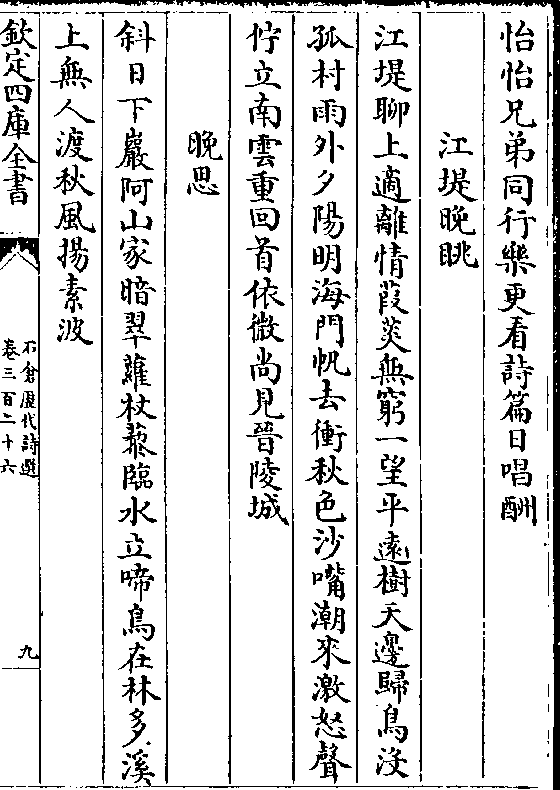 怡怡兄弟同行樂更看詩篇日唱酬
江堤晚眺
江堤聊上適離情葭菼無窮一望平遠樹天邊歸鳥没
孤村雨外夕陽明海門帆去衝秋色沙嘴潮來激怒聲
佇立南雲重回首依微尚見晉陵城
晚思
斜日下巖阿山家暗翠蘿杖藜臨水立啼鳥在林多溪
上無人渡秋風揚素波
欽定四庫全書
石倉歷代詩選
卷三百二十六
九